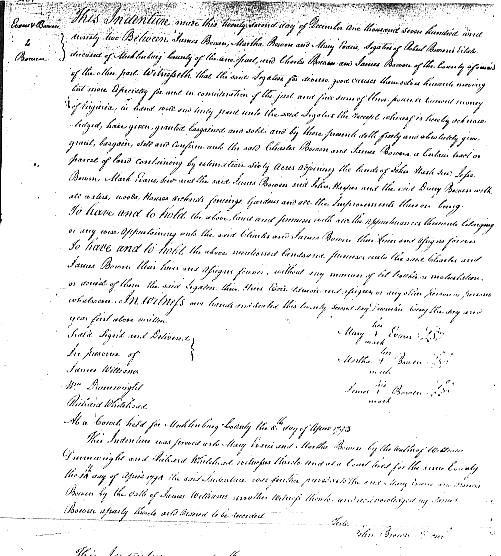 Evans & Bowen
to
Bowen
This Indenture made this twenty second day of December one thousand seven hundred and
ninety two Between James Bowen, Martha Bowen and Mary Evans, Legatees of
deceased of Mecklenburg County of the one part, and Charles Bowen and James Bowen of the County aforesaid
of the other part. Witnesseth that the said Legatees for divers good causes them hereunto moving
but more Especially for and in consideration of the just and full sum of three pounds current money
of Virginia, in hand well and truly paid unto the said Legatees the receipt whereof is hereby acknow-
ledged, have given, granted, bargained and sold, and by these presents doth freely and absolutely give
grant, bargain, sell and confirm unto the said Charles Bowen and James Bowen, a Certain tract or
parcel of land containing by estimation Sixty Acres adjoining the lands of John Nash
Bowen, Mark Evans and the said James Bowen and and the said Bowen with
all waters, woods Houses orchards fencings Gardens and all the Improvements thereon being
To have and to hold the above land and premises with all the appurtenances thereunto belonging
or any wise Appertaining unto the said Charles and James Bowen their heirs and assigns forever
To have and to hold the above mentioned land and premises unto the said Charles and
James Bowen their heirs and assigns forever, without any manner of let hindrance molestation
or denial of them the said Legatees their Heirs and assigns or any other person or persons
whatsoever. In Witness our hands and seals this twenty second day December being the day and
year first above written.
Seal'd Sign'd and Delivered
In presence of
James Williams
Wm Drumwright
Richard Whitehead
her
Mary + Evans
mark
her
Martha + Bowen
mark
James Bowen
mark
At a Court held for Mecklenburg County the 8th day of April 1793
This Indenture was proved as to Mary Evans and Martha Bowen by the oaths of William
Drumwright and Richard Whitehead witnesses thereto and at a Court held for the same County
the day of April 1794 the said Indenture was further proved as to the said Mary Evans and
Bowen by the oath of James Williams another witness thereto and acknowledged by James
Bowen a party thereto and ordered to be recorded.
Teste
John Brown
This Indenture